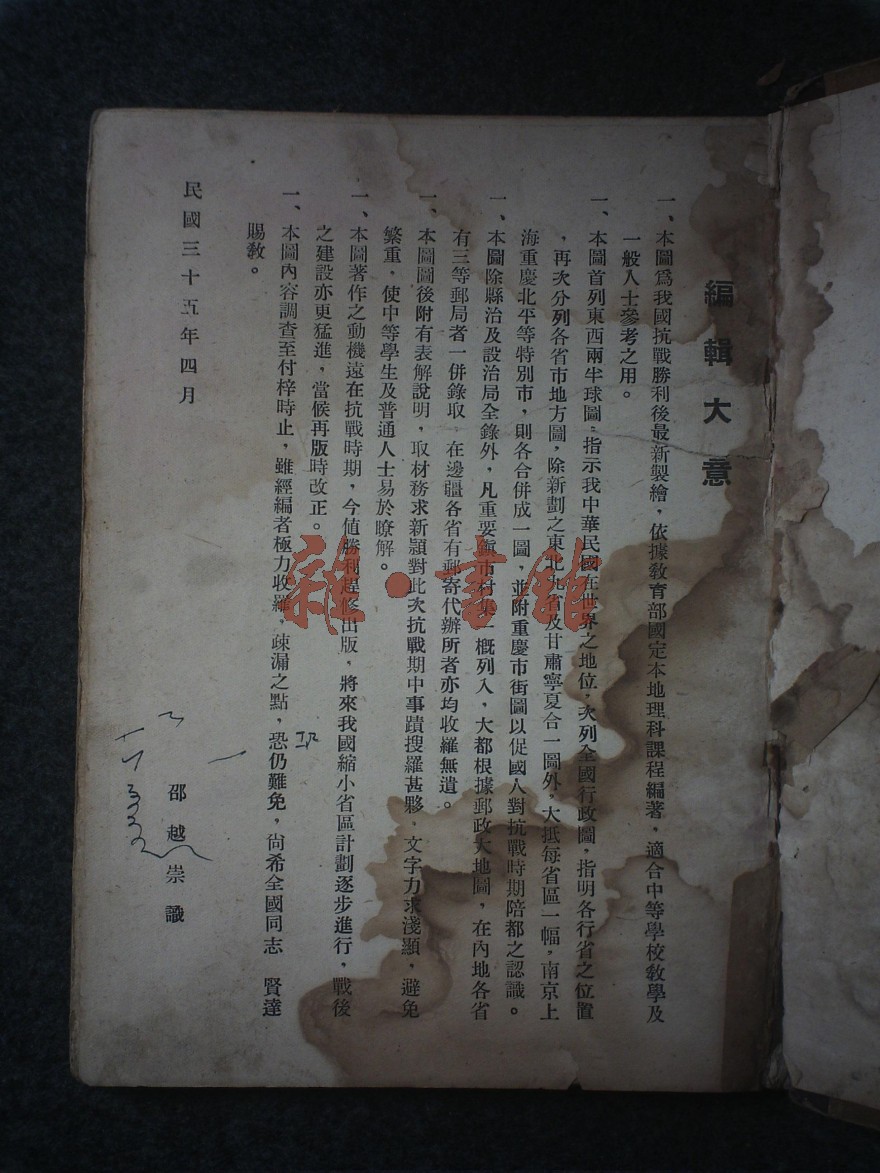 編輯大意
一、本圖爲我國抗戰勝利後最新製繪，依據敎育部國定本地理科課程編著，適合中等學校敎學及
一般人士參考之用。
一、本圖首列東西兩半球圖，指示我中華民國在世界之地位，次列全國行政圖，指明各行省之位置
，再次分列各省市地方圖，除新劃之東北九省及甘肅寧夏合一圖外，大抵每省區一幅，南京上
海重慶北平等特別市，則各合併成一圖，並附重慶市街圖以促國人對抗戰時期陪都之認識。
一、本圖除縣治及設治局全錄外，凡重要鎭市村集一概列入，大都根據郵政大地圖，在內地各省
有三等郵局者一併錄取，在邊疆各省有郵寄代辦所者亦均收羅無遺。
一、本圖圖後附有表解說明，取材務求新穎對此次抗戰期中事蹟搜羅甚夥，文字力求淺顯，避免
繁重，使中等學生及普通人士易於瞭解。
一、本圖著作之動機遠在抗戰時期，今値勝利趕修出版，將來我國縮小省區計劃逐步進行，戰後
之建設亦更猛進，當候再版時改正。
一、本圖內容調查至付梓時止，雖經編者極力收羅，疎漏之點，恐仍難免，尙希全國同志　賢達
賜敎。
民國三十五年四月
邵越崇識
雜·書館